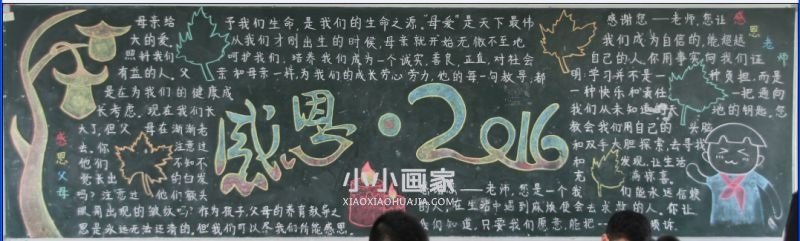 母亲给予我们生命,是我们的生命之源。"母爱"是天下最伟
大的爱,从我们才刚出生的时候,母亲就开始无微不至地
照料我们,呵护我们,培养我们成为一个诚实、善良、正直、对社会
有益的人。父亲和母亲一样,为我们的成长劳心劳力,他的每一句教导,都
是在为我们的健康成
长考虑。现在我们长
大了,但父母在渐渐老
去。你注意过
他们不知不
觉长出的白发
吗?注意过他们额头
眼角出现的皱纹吗?作为孩子,父母的养育教导之
恩是永远无法还清的,但我们可以尽我们所能感恩。
感恩父母
感恩·2016
小小画家
XIAOXIAOHUAJIA.COM
感恩老师
感谢您——老师,您让
我们成为自信的,能超越
自己的人。你用事实向我们证
明,学习并不是一种负担,而是
一种快乐和责任,一把通向
我们从未知道的地的钥匙。您
教会我们用自己的头脑
和双手大胆探索,去寻找
和发现,让生活充满惊喜。
——老师,您是一个我们能永远信赖
的人,在生活中遇到麻烦便会去求教的人。你让
我们知道,只要我们愿意,能把一倾诉。